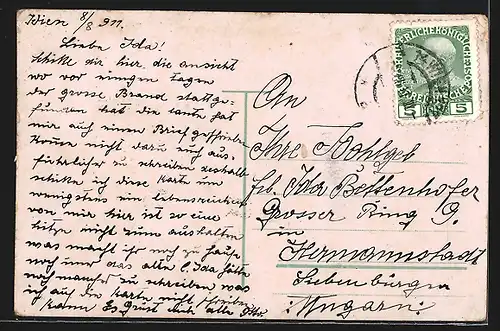 Wien 8/8 911.
Liebe Ida!
Schike dir hier die ansicht
wo vor einigen Tagen
der grosse Brand stattge-
funden hat die tante hat
mir auch einen Brief geschrieben
Komme nicht dazu euch aus-
führlicher zu schreiben deshalb
schike ich diese Karte um
wenigstens ein Lebenszeichen
von mir hier ist so eine
hitze nicht zum aushalten
was macht ihr noch zu hause
noch immer das alte l. Ida hätte
noch mancher zu schreiben was
ich auf der Karte nicht schreiben
kann Es Grüst euch alle
An
Ihre Wohlgeb
Frl. Ida Bettenhofer
Grosser Ring 9.
in
Hermannstadt
Siebenbürgen
:Ungarn:
5 5